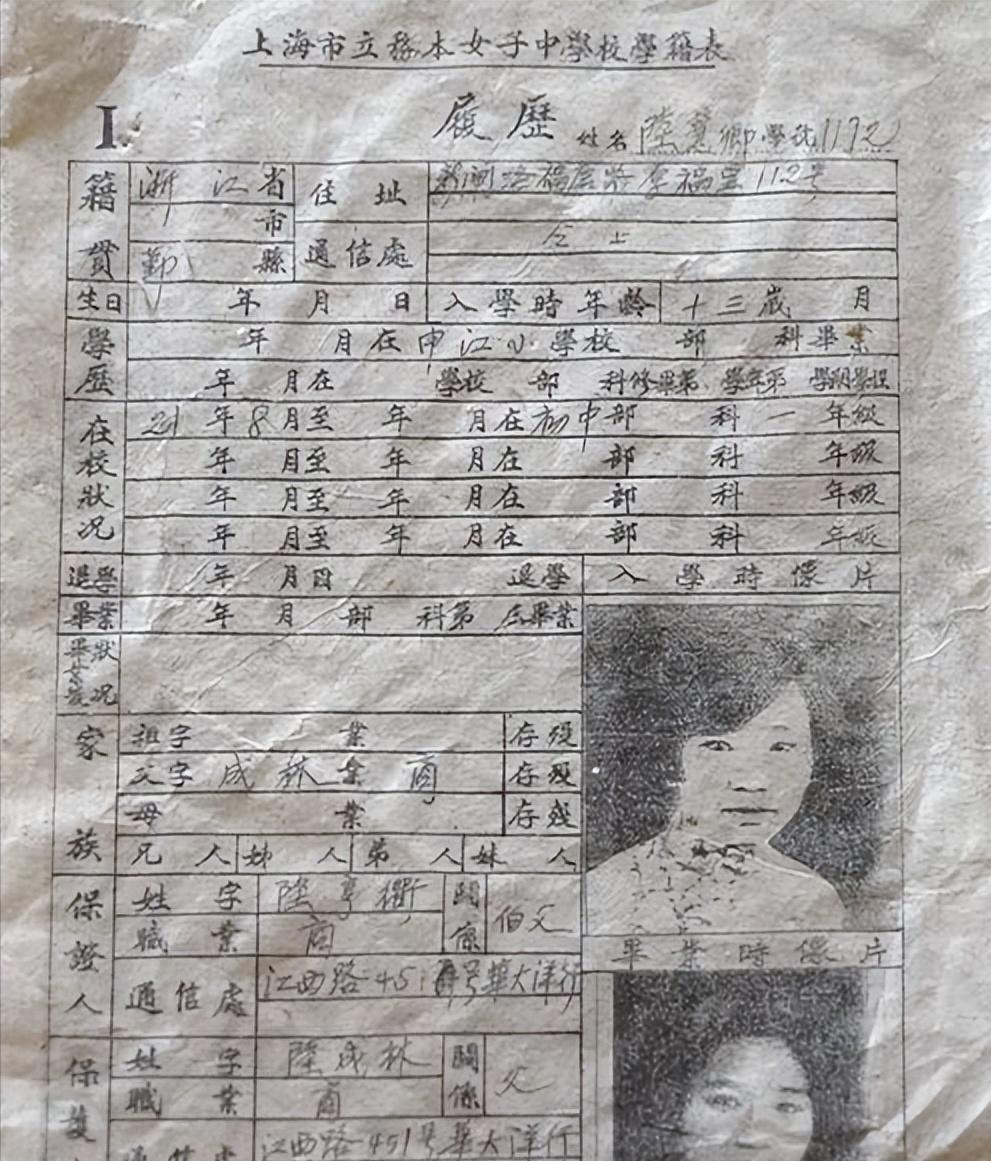 上海市立務本女子中學校學籍表
I. 履歷 姓名 陸慧卿 學號 1192
籍貫 浙江省 住址 新閘路福康路李福里112號
市
鄞縣 通信處 仝上
生日 年 月 日 入學時年齡 十三歲 月
學歷 年 月在申江小學校 部 科畢業
年 月在 學校 部 科修畢第 學年第 學期學程
在校狀況 21年8月至 年 月在初中部 科一年級
年 月至 年 月在 部 科 年級
年 月至 年 月在 部 科 年級
年 月至 年 月在 部 科 年級
退學 年 月 日 退學 入學時像片
畢業 年 月 部 科第 屆畢業
畢業後狀況
家族 祖字 業 存歿
父字 成林 業 商 存歿
母 業 存歿
兄 人 姊 人 弟 人 妹 人
保證人 姓字 陸亨衢 關係 伯父
職業 商 畢業時像片
通信處 江西路451號華大洋行
保護 姓字 陸成林 關係 父
職業 商
通信處 江西路451號華大洋行